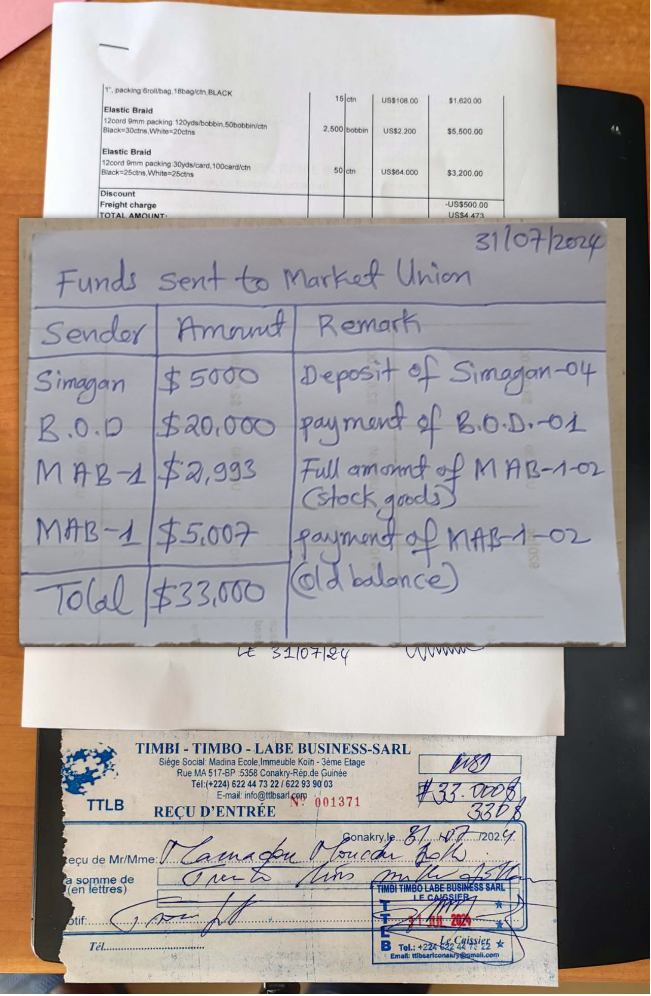 1", packing:6roll/bag,16bag/ctn,BLACK 15 ctn US$108.00 $1,620.00
Elastic Braid
12cord 9mm packing:120yds/bobbin,50bobbin/ctn 2,500 bobbin US$2.200 $5,500.00
Black=30ctns,White=20ctns
Elastic Braid
12cord 9mm packing:30yds/card,100card/ctn 50 ctn US$64.000 $3,200.00
Black=25ctns,White=25ctns
Discount
Freight charge -US$500.00
TOTAL AMOUNT: US$4,473
31/07/2024
Funds sent to Market Union
Sender Amount Remark
Simagan $5000 Deposit of Simagan-04
B.O.D $20,000 payment of B.O.D.-01
MAB-1 $2,993 Full amount of MAB-1-02
(stock goods)
MAB-1 $5,007 payment of MAB-1-02
(old balance)
Total $33,000
LE 31/07/24
TIMBI - TIMBO - LABE BUSINESS-SARL
Siége Social: Madina Ecole,Immeuble Koin - 3ème Etage
Rue MA 517-BP :5358 Conakry-Rép.de Guinée
Tél:(+224) 622 44 73 22 / 622 93 90 03
E-mail: info@ttlbsarl.com
TTLB
N° 001371
REÇU D'ENTRÉE
$33.000$
330$
Conakry,le 31 07 /2024
eçu de Mr/Mme: Mamadou
a somme de Trente trois mille
(en lettres)
otif:
Tél.
TIMBI TIMBO LABE BUSINESS SARL
LE CAISSIER
TTLB
31 JUL 2024
Le Caissier
Tel.: +224 622 44 73 22
Email: ttlbsarlconakry@gmail.com